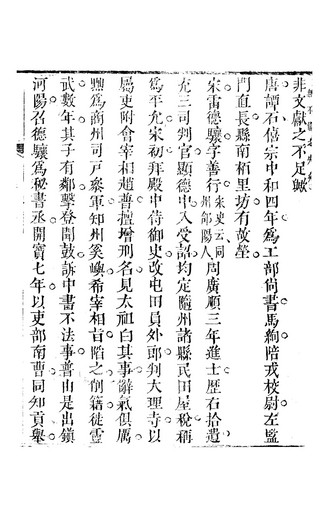 非文獻之不足歟
唐譚石僖宗中和四年爲工部尙書馬絢陪戎校尉左監
門直長縣南栢里坊有故塋
宋雷德驤字善行
宋史云同
州郃陽人
周廣順三年進士歷右拾遺
充三司判官顯德中入受詔均定隨州諸縣民田屋稅稱
爲平允宋初拜殿中侍御史改屯田員外郎判大理寺以
屬吏附會宰相趙普擅增刑名見太祖白其事辭氣俱厲
黜爲商州司戸叅軍知州奚嶼希宰相旨陷之削籍徒靈
武數年其子有鄰擊登聞鼓訴中書不法事普由是出鎭
河陽召德驤爲秘書丞開寶七年以吏部南曹同知貢舉